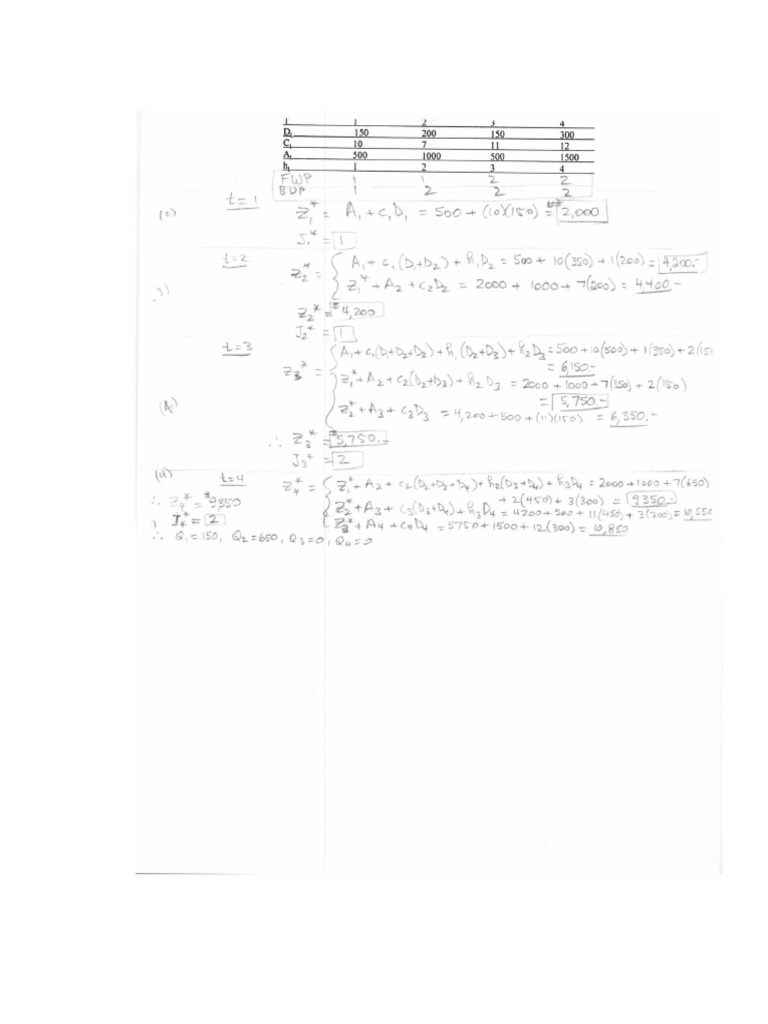 1 2 3 4
Dₜ 150 200 150 300
Cₜ 10 7 11 12
Aₜ 500 1000 500 1500
hₜ 1 2 3 4
FWP 1 1 2 2
BDP 1 2 2 2
t=1
Z₁* = A₁ + c₁D₁ = 500 + (10)(150) = 2,000.
J₁* = 1
t=2
Z₂* = A₁ + c₁(D₁+D₂) + h₁D₂ = 500 + 10(350) + 1(200) = 4,200.-
Z₁* + A₂ + c₂D₂ = 2000 + 1000 + 7(200) = 4,400.-
Z₂* = $4,200
J₂* = 1
t=3
Z₃* = A₁ + c₁(D₁+D₂+D₃) + h₁(D₂+D₃) + h₂D₃ = 500 + 10(500) + 1(350) + 2(15
= 6,150.-
Z₁* + A₂ + c₂(D₂+D₃) + h₂D₃ = 2000 + 1000 + 7(350) + 2(150)
= 5,750.-
Z₂* + A₃ + c₃D₃ = 4,200 + 500 + (11)(150) = 6,350.-
∴ Z₃* = $5,750.-
J₃* = 2
(4) t=4
Z₄* = Z₁* + A₂ + c₂(D₂+D₃+D₄) + h₂(D₃+D₄) + h₃D₄ = 2000 + 1000 + 7(650)
+ 2(450) + 3(300) = 9350.-
∴ Z₄* = $9,350
Z₂* + A₃ + c₃(D₃+D₄) + h₃D₄ = 4200 + 500 + 11(450) + 3(300) = 10,550
J₄* = 2
Z₃* + A₄ + c₄D₄ = 5750 + 1500 + 12(300) = 10,850
∴ Q₁=150, Q₂=650, Q₃=0, Q₄=0